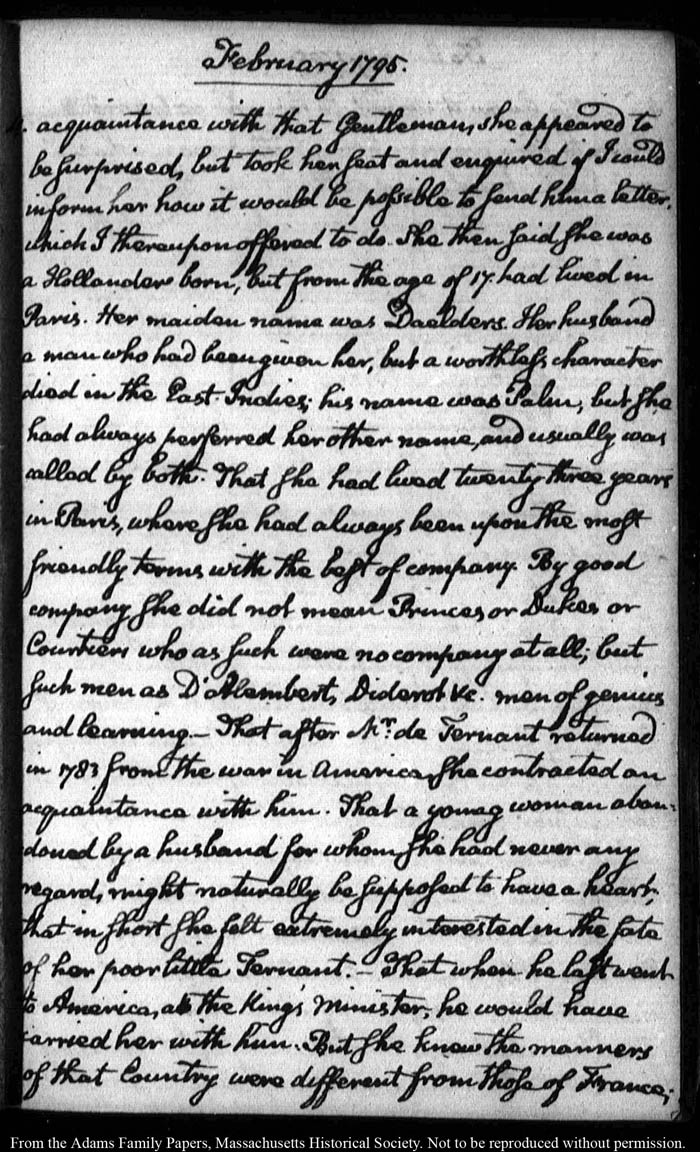 February 1795.
4. acquaintance with that Gentleman, she appeared to
be surprised, but took her seat and enquired if I could
inform her how it would be possible to send him a letter,
which I thereupon offered to do. She then said she was
a Hollander born, but from the age of 17. had lived in
Paris. Her maiden name was Daelders. Her husband
a man who had been given her, but a worthless character
died in the East-Indies; his name was Palm, but she
had always perferred her other name, and usually was
called by both. That she had lived twenty three years
in Paris, where she had always been upon the most
friendly terms with the best of company. By good
company she did not mean Princes or Dukes or
Courtiers who as such were no company at all; but
such men as D'Alembert, Diderot &c. men of genius
and learning.— That after Mr. de Ternant returned
in 1783 from the war in America, she contracted an
acquaintance with him. That a young woman aban-
doned by a husband for whom she had never any
regard, might naturally be supposed to have a heart;
that in short she felt extremely interested in the fate
of her poor little Ternant.— That when he last went
to America, as the King's Minister, he would have
carried her with him. But she knew the manners
of that Country were different from those of France;
From the Adams Family Papers, Massachusetts Historical Society. Not to be reproduced without permission.